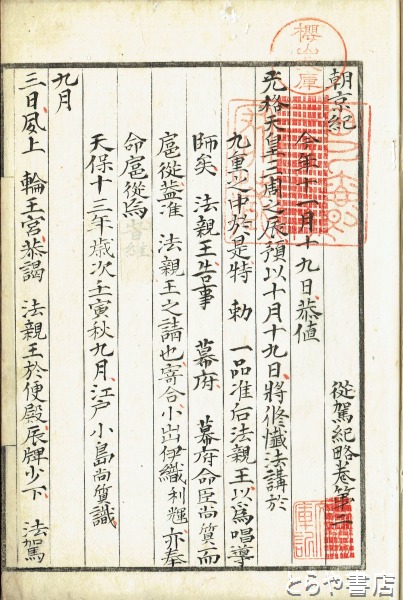 朝京紀 從駕紀略卷第二
今年十一月十九日恭値
光格天皇三周之辰預以十月十九日將修懺法講於
九重之中於是特 勅 一品准后法親王以爲唱導
師矣 法親王告事 幕府 幕府命臣尚質而
扈從蓋准 法親王之請也寄合小出伊織利輝亦奉
命扈從焉
天保十三年歳次壬寅秋九月江戸小島尚質識
九月
三日夙上 輪王宮恭謁 法親王於便殿辰牌少下 法駕
櫻山文庫
とらや書店